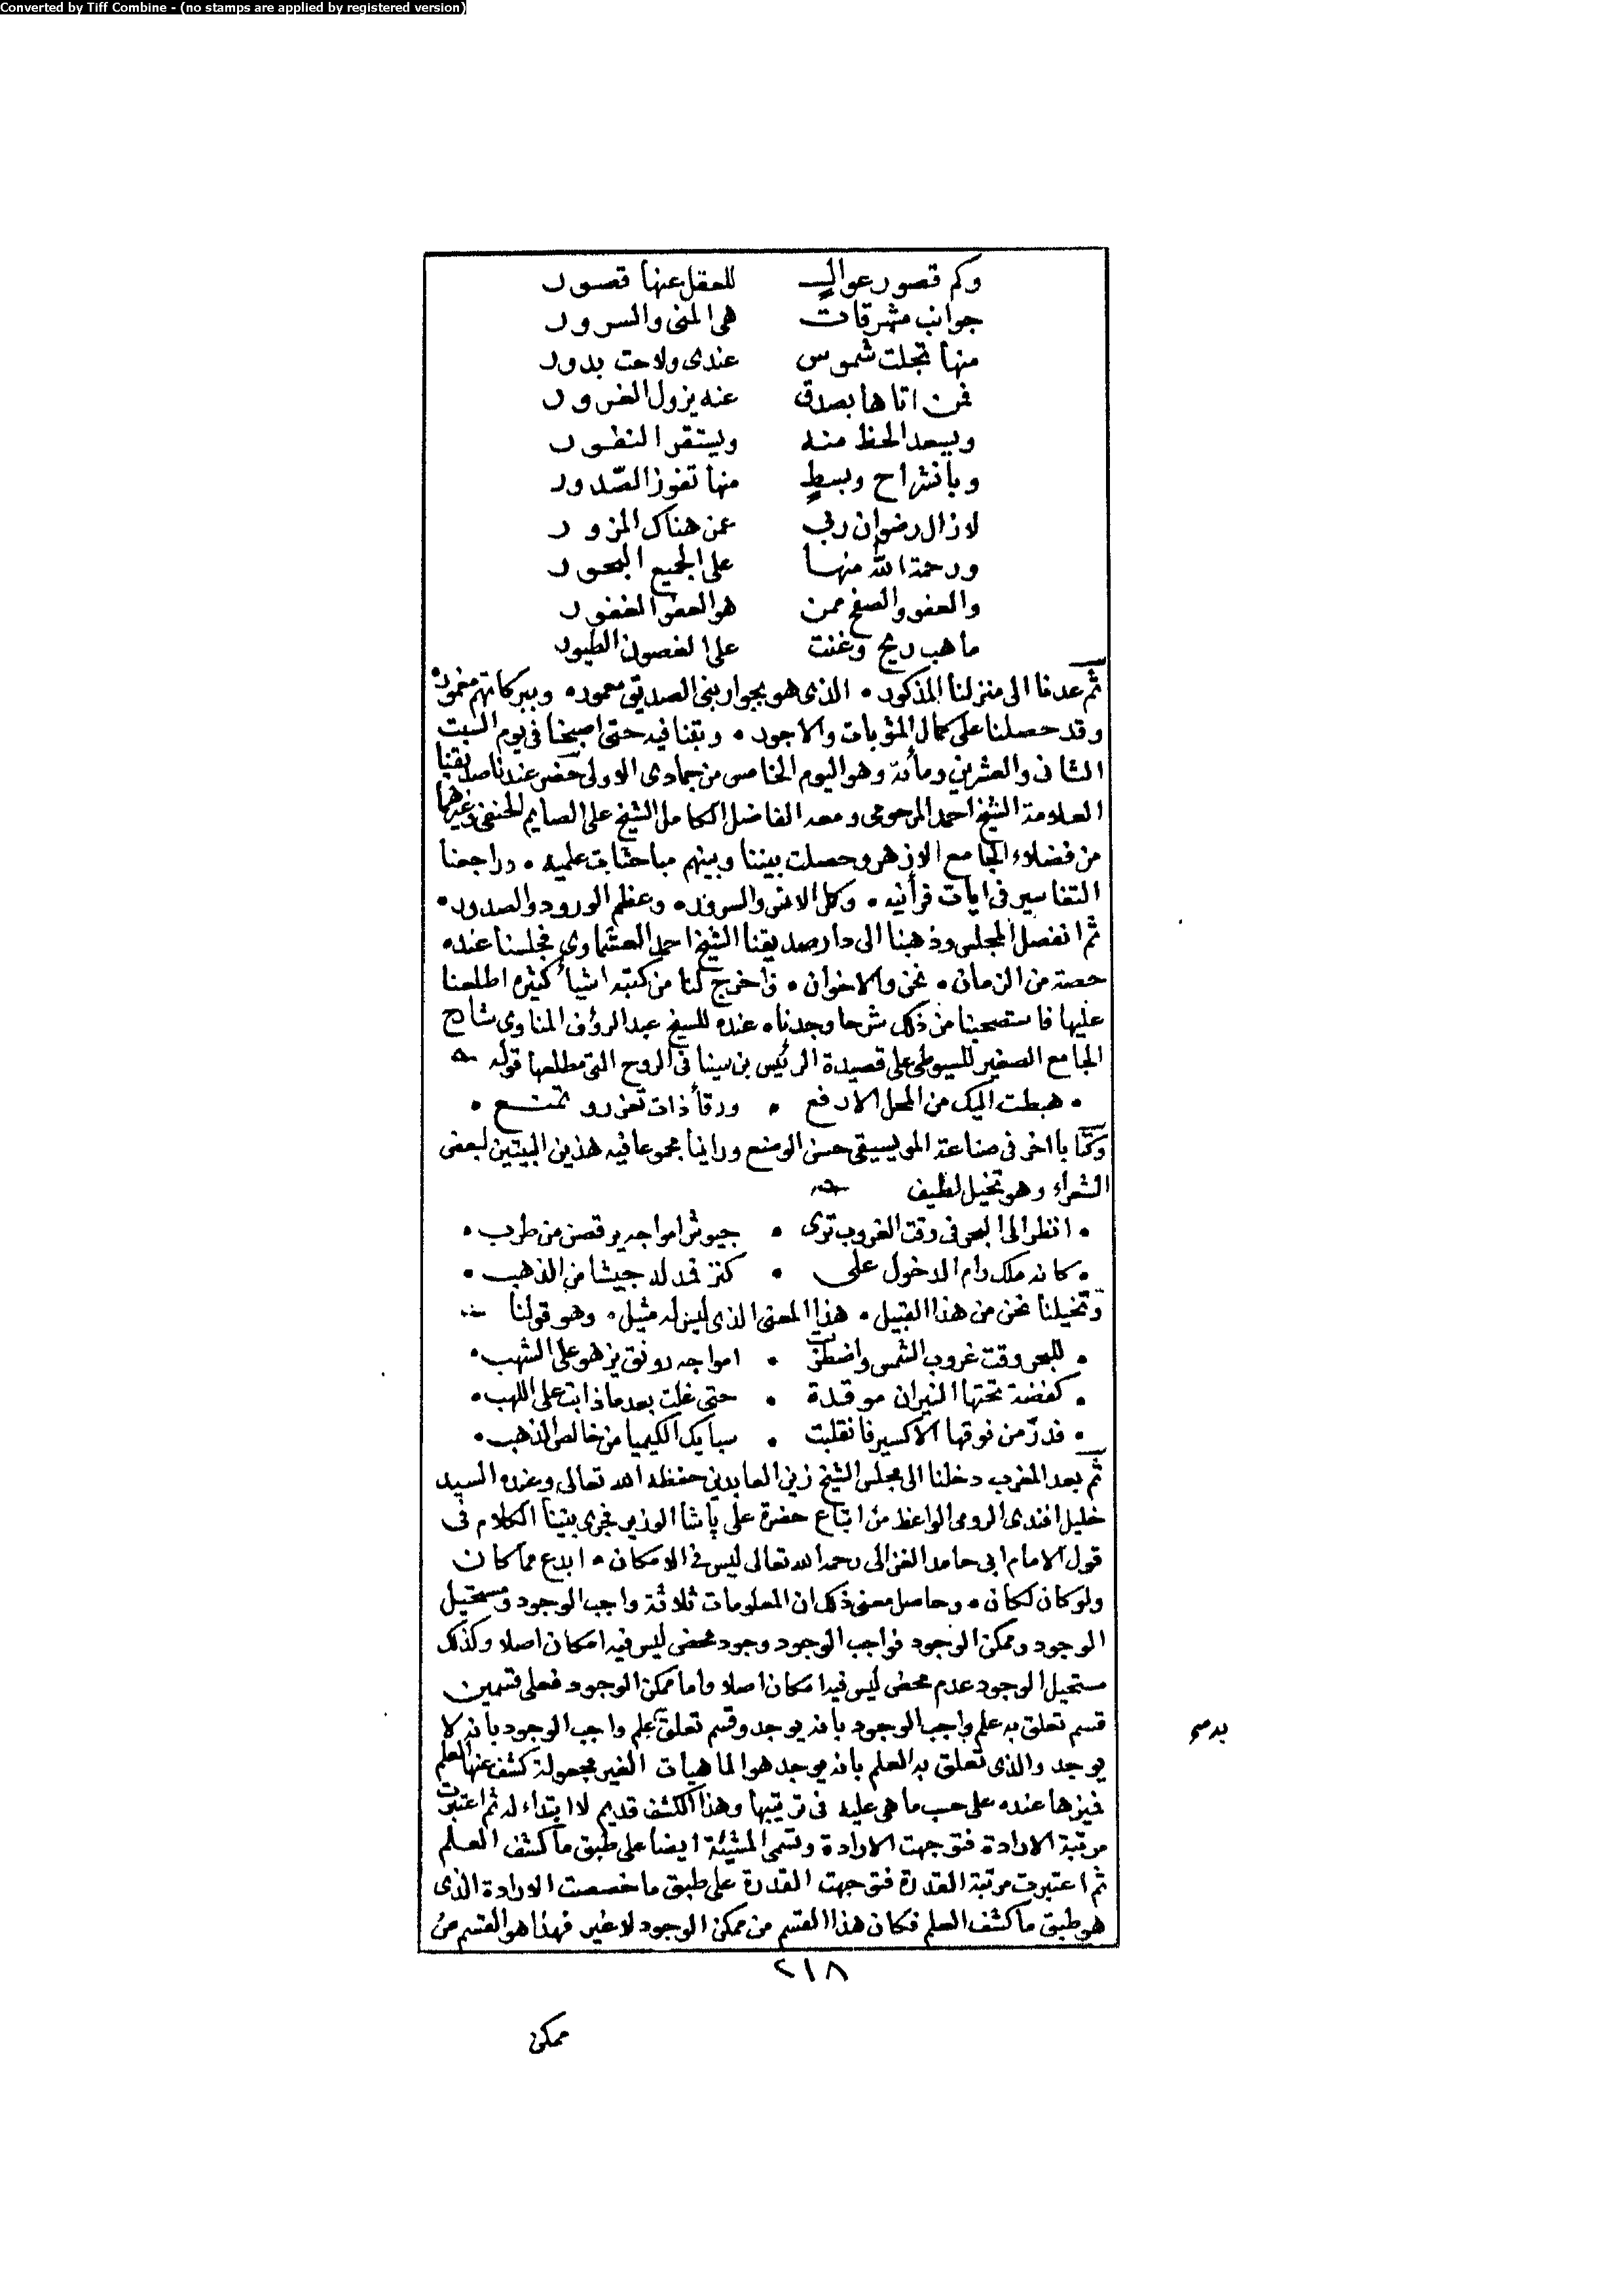 Converted by Tiff Combine - (no stamps are applied by registered version)
وكم قصور عوالٍ للعقل عنها قصور
جوانب مشرقات هى المنى والسرور
منها تجلت شموس عندى ولاحت بدور
فمن اتاها بصدق عنه يزول الغرور
ويسعد الحظ منه ويستقر النفور
وبانشراح وبسطٍ منها تفوز الصّدور
لازال رضوان ربى عمن هناك المزور
ورحمة الله منها على الجميع البحور
والعفو والصفح ممن هو العفو الغفور
ما هب ريح وغنت على الغصون الطيور
ثم عدنا الى منزلنا المذكور • الذى هو بجوار بنى الصديق معمور • وببركاتهم مغمور
وقد حصلنا على كمال المثوبات والاجور • وبتنا فيه حتى اصبحنا فى يوم السبت
الثانى والعشرين ومائة وهو اليوم الخامس من جمادى الاولى حضر عندنا صديقنا
العلامة الشيخ احمد المرحومى ومعه الفاضل الكامل الشيخ على الصايم الحنفى وغيرهما
من فضلاء الجامع الازهر وحصلت بيننا وبينهم مباحثات علميه • وراجعنا
التفاسير فى ايات قرأنيه • وكمل الانس والسرور • وعظم الورود والصدور •
ثم انفصل المجلس وذهبنا الى دار صديقنا الشيخ احمد العشماوى فجلسنا عنده
حصة من الزمان • نحن والاخوان • فاخرج لنا من كتبه اشيأ كثيره اطلعنا
عليها فاستصحبنا من ذلك شرحا وجدناه عنده للشيخ عبد الرؤف المناوى شارح
الجامع الصغير للسيوطى على قصيدة الرئيس بن سينا فى الروح التى مطلعها قوله
• هبطت اليك من المحل الارفع • ورقأ ذات تعزر وتمنع •
وكتابا اخر فى صناعة المويسيقى حسن الوضع وراينا مجموعا فيه هذين البيتين لبعض
الشعراء وهو تخيل لطيف
• انظر الى البحر فى وقت الغروب ترى • جيوش امواجه يرقصن من طرب •
• كانه ملك رام الدخول على • كنز فمد له جيشا من الذهب •
وتخيلنا نحن من هذا القبيل • هذا المعنى الذى ليس له مثيل • وهو قولنا
• للبحر وقت غروب الشمس واضطربت • امواجه رونق يزهو على الشهب •
• كفضة تحتها النيران موقدة • حتى غلت بعد ما ذابت على اللهب •
• فذرّ من فوقها الاكسير فانقلبت • سبايك الكيميا من خالص الذهب •
ثم بعد المغرب دخلنا الى مجلس الشيخ زين العابدين حفظه الله تعالى وعنده السيد
خليل افندى الرومى الواعظ من اتباع حضرة على باشا الوزير فجرى بيننا الكلام فى
قول الامام ابى حامد الغزالى رحمه الله تعالى ليس فى الامكان • ابدع مما كان
ولو كان لكان • وحاصل معنى ذلك ان المعلومات ثلاثة واجب الوجود ومستحيل
الوجود وممكن الوجود فواجب الوجود وجود محض ليس فيه امكان اصلا وكذلك
مستحيل الوجود عدم محض ليس فيه امكان اصلا واما ممكن الوجود فعلى قسمين
قسم تعلق به علم واجب الوجود بانه يوجد وقسم تعلق علم واجب الوجود بانه لا
يوجد والذى تعلق به العلم بانه يوجد هو الماهيات الغير مجعولة كشف عنها العلم
فميزها عنده على حسب ما هى عليه فى ترتيبها وهذا الكشف قديم لا ابتداء له ثم اعتبرت
مرتبة الارادة فتوجهت الارادة وتسمى المشيئة ايضا على طبق ما كشف العلم
ثم اعتبرت مرتبة القدرة فتوجهت القدرة على طبق ما خصصت الارادة الذى
هو طبق ما كشف العلم فكان هذا القسم من ممكن الوجود لا غير فهذا هو القسم من
به صح
٢١٨
ممكن